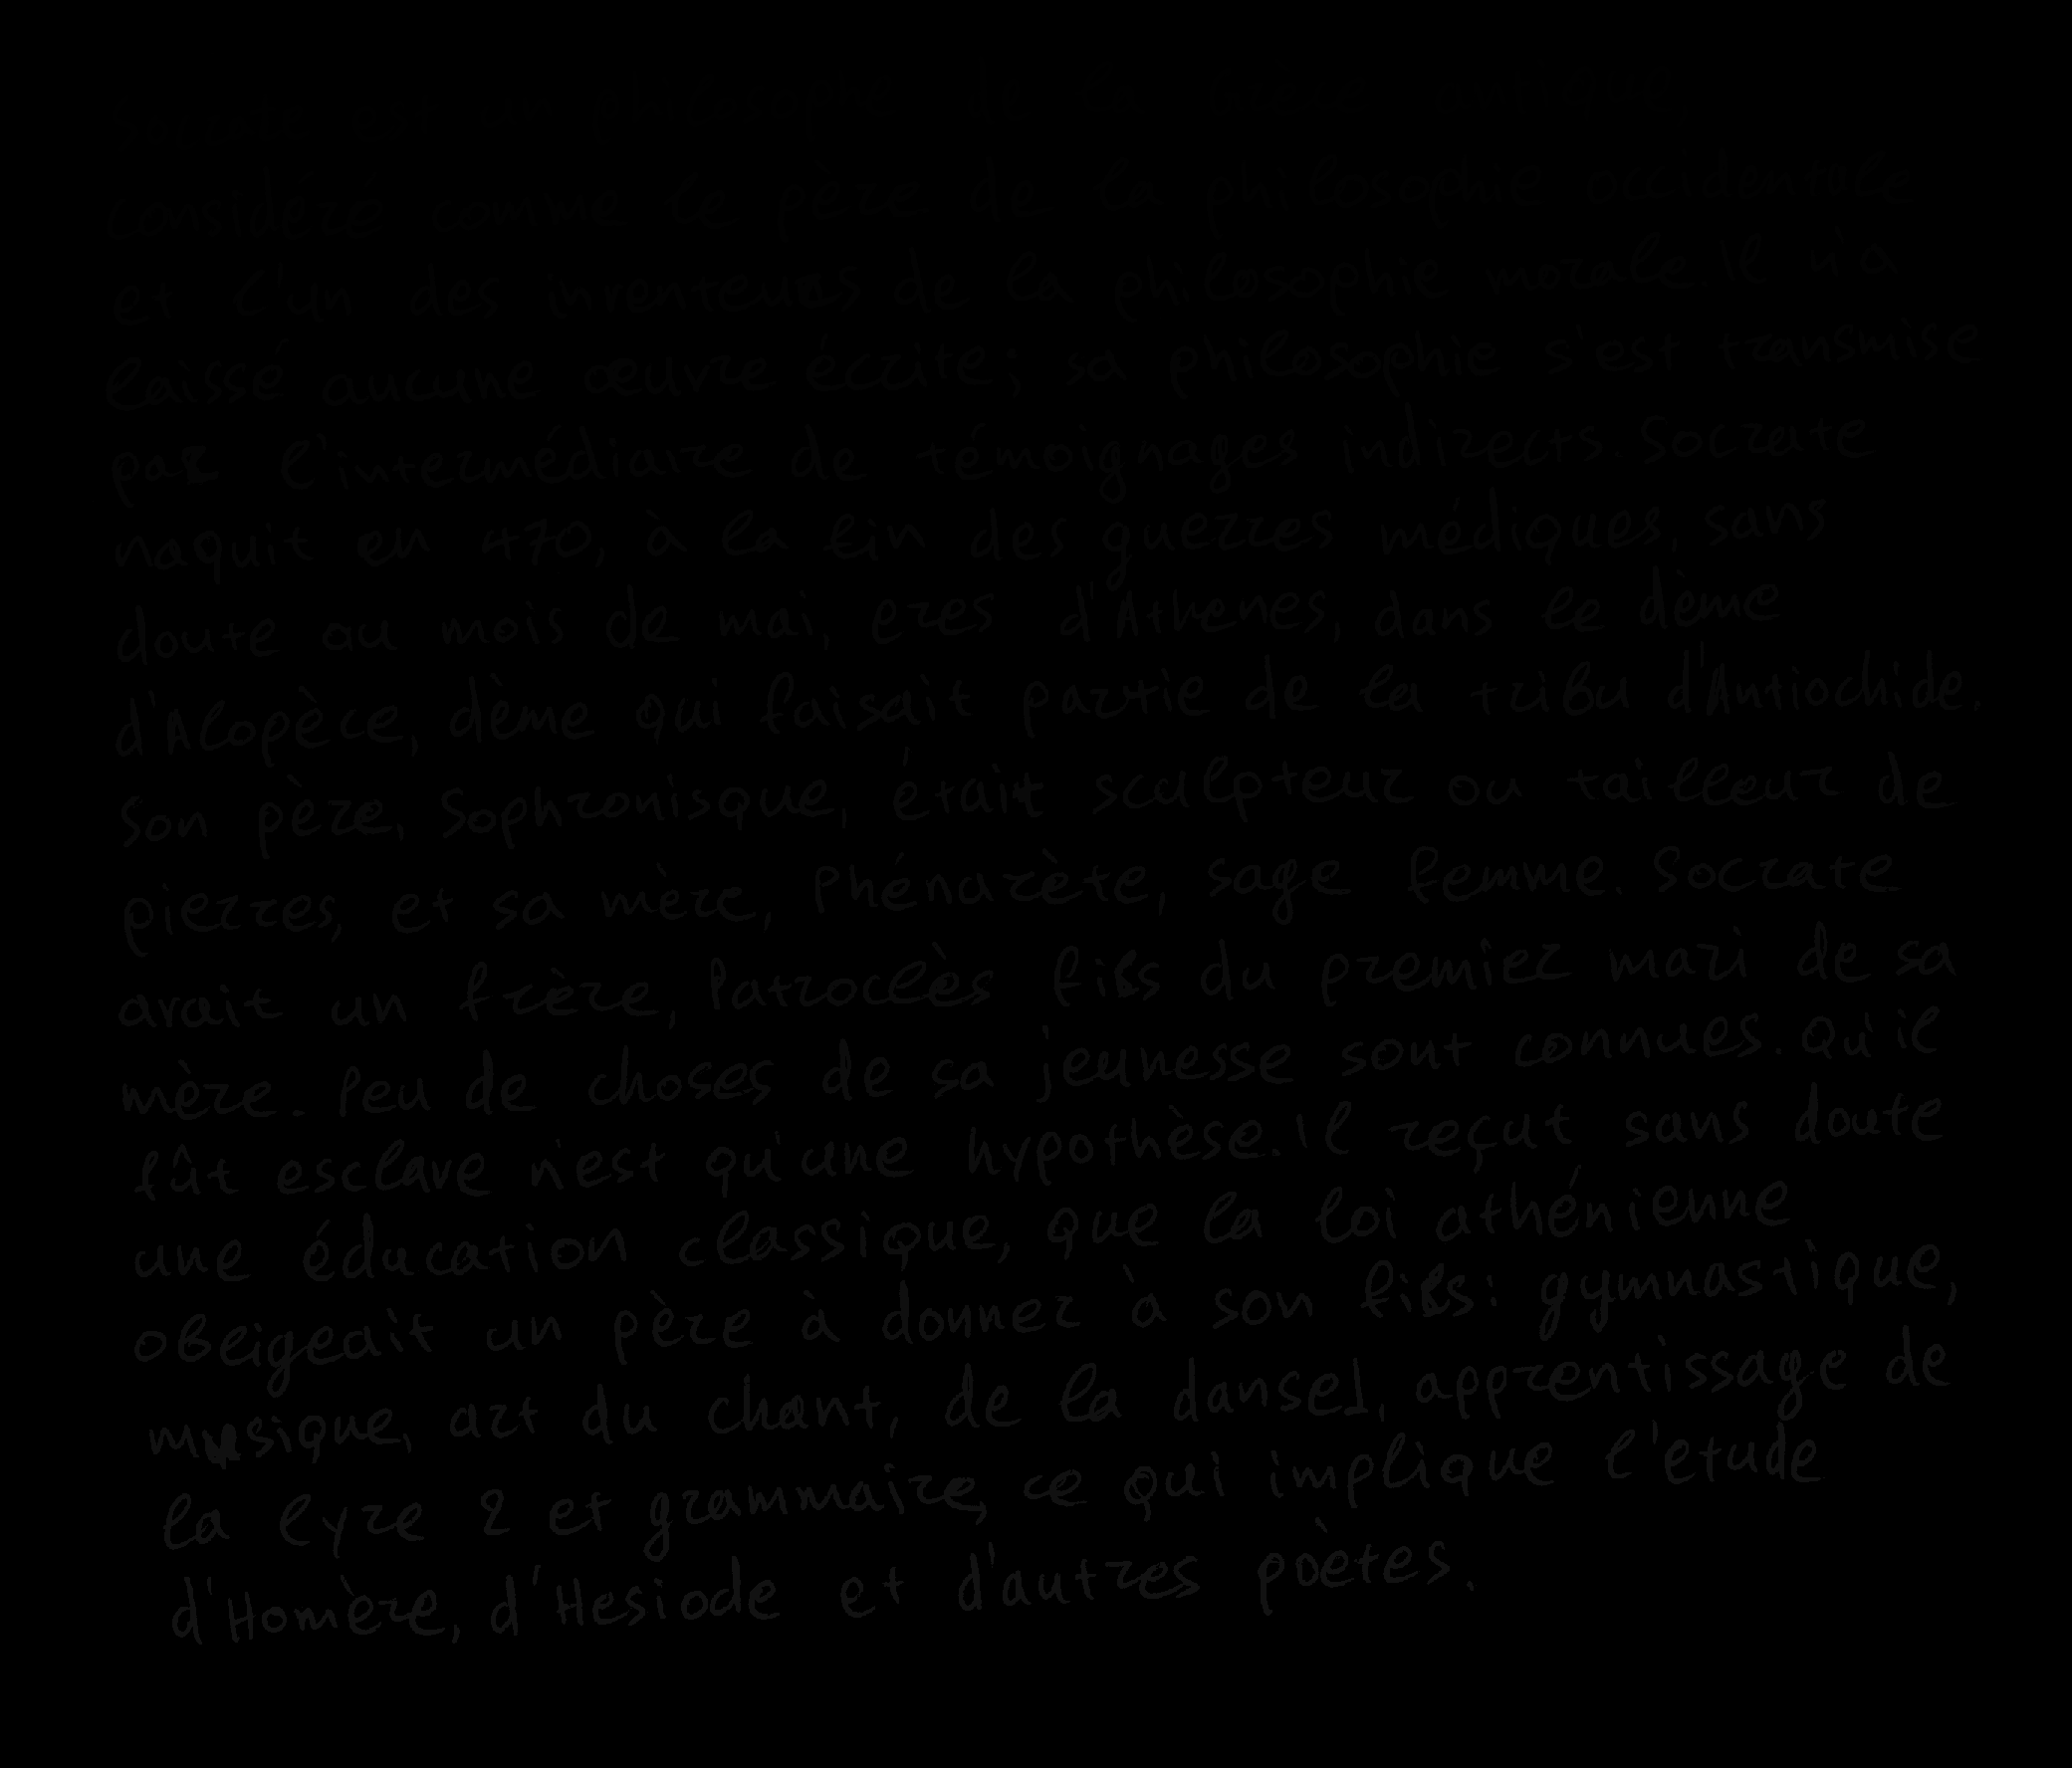 Socrate est un philosophe de la Grèce antique,
considéré comme le père de la philosophie occidentale
et l'un des inventeurs de la philosophie morale. Il n'a
laissé aucune œuvre écrite; sa philosophie s'est transmise
par l'intermédiaire de témoignages indirects. Socrate
naquit en 470, à la fin des guerres médiques, sans
doute au mois de mai, eres d'Athenes, dans le dème
d'Alopèce, dème qui faisait partie de la tribu d'Antiochide.
Son père, Sophronisque, était sculpteur ou tailleur de
pierres, et sa mère, Phénarète, sage femme. Socrate
avait un frère, Patroclès fils du premier mari de sa
mère. Peu de choses de sa jeunesse sont connues. Qu'il
fût esclave n'est qu'une hypothèse. Il reçut sans doute
une éducation classique, que la loi athénienne
obligeait un père à donner à son fils: gymnastique,
musique, art du chant, de la danse1, apprentissage de
la lyre 2 et grammaire, ce qui implique l'etude
d'Homère, d'Hesiode et d'autres poètes.